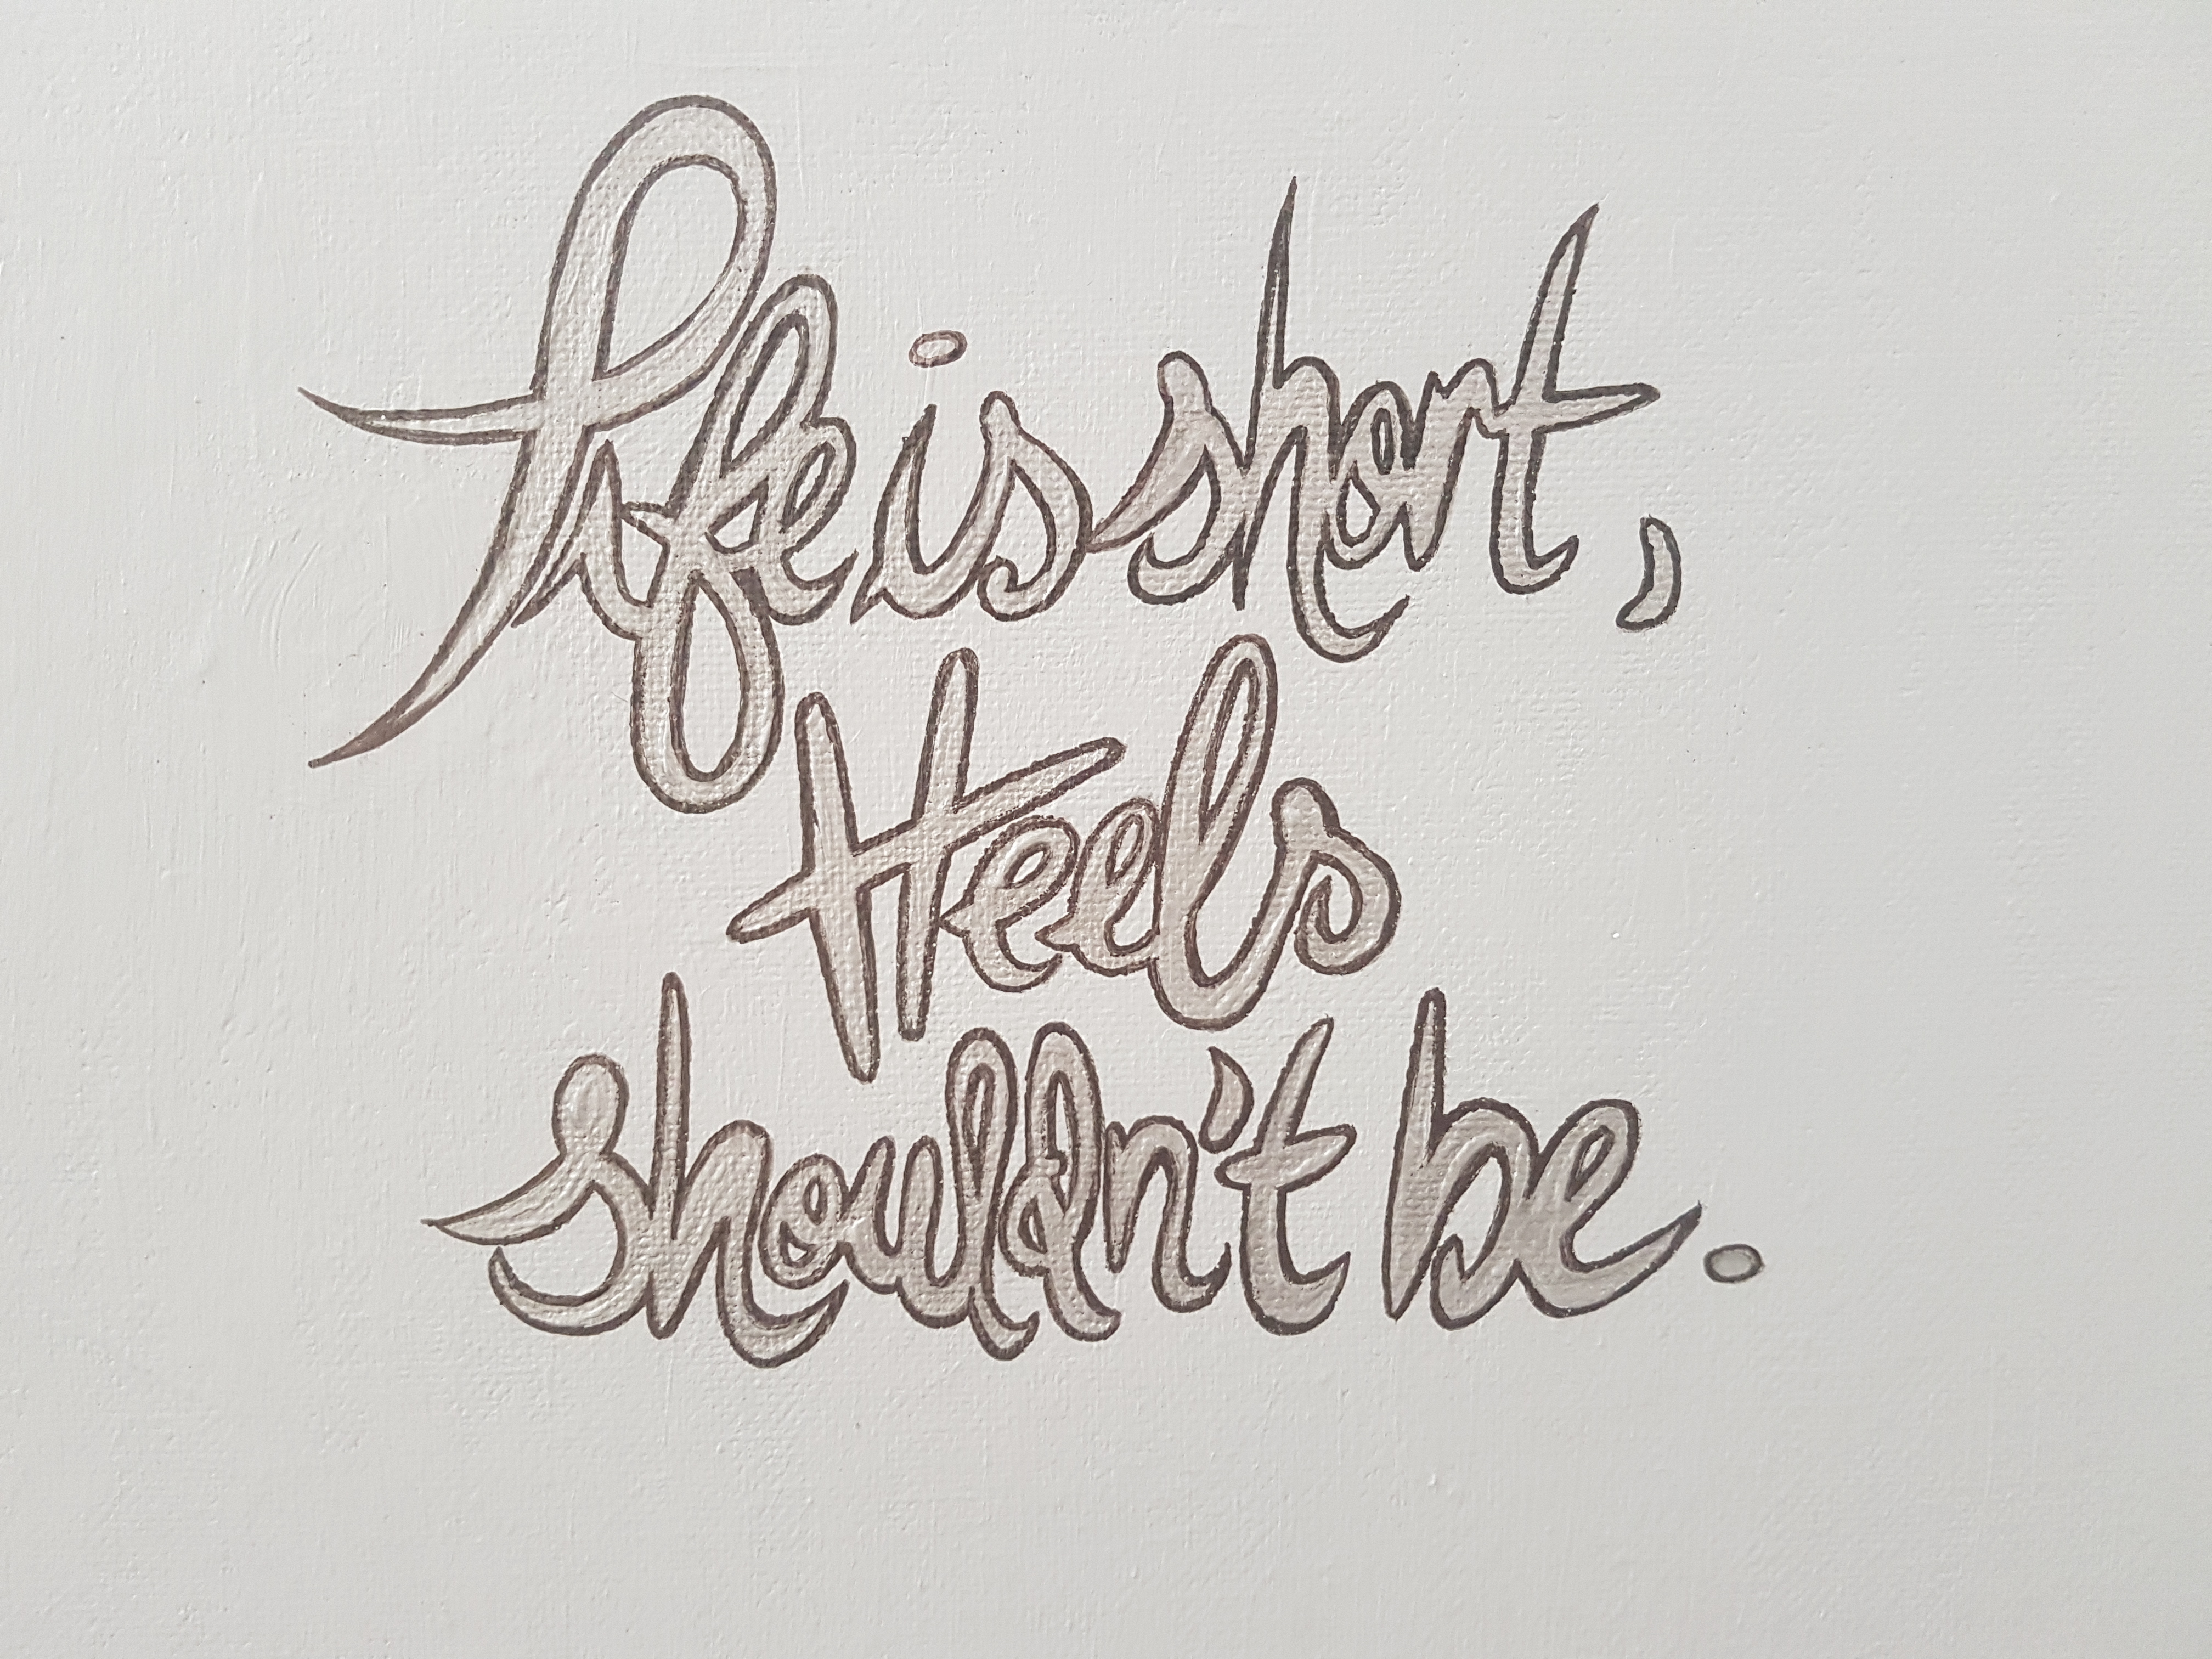 Life is short,
Heels
shouldn't be.